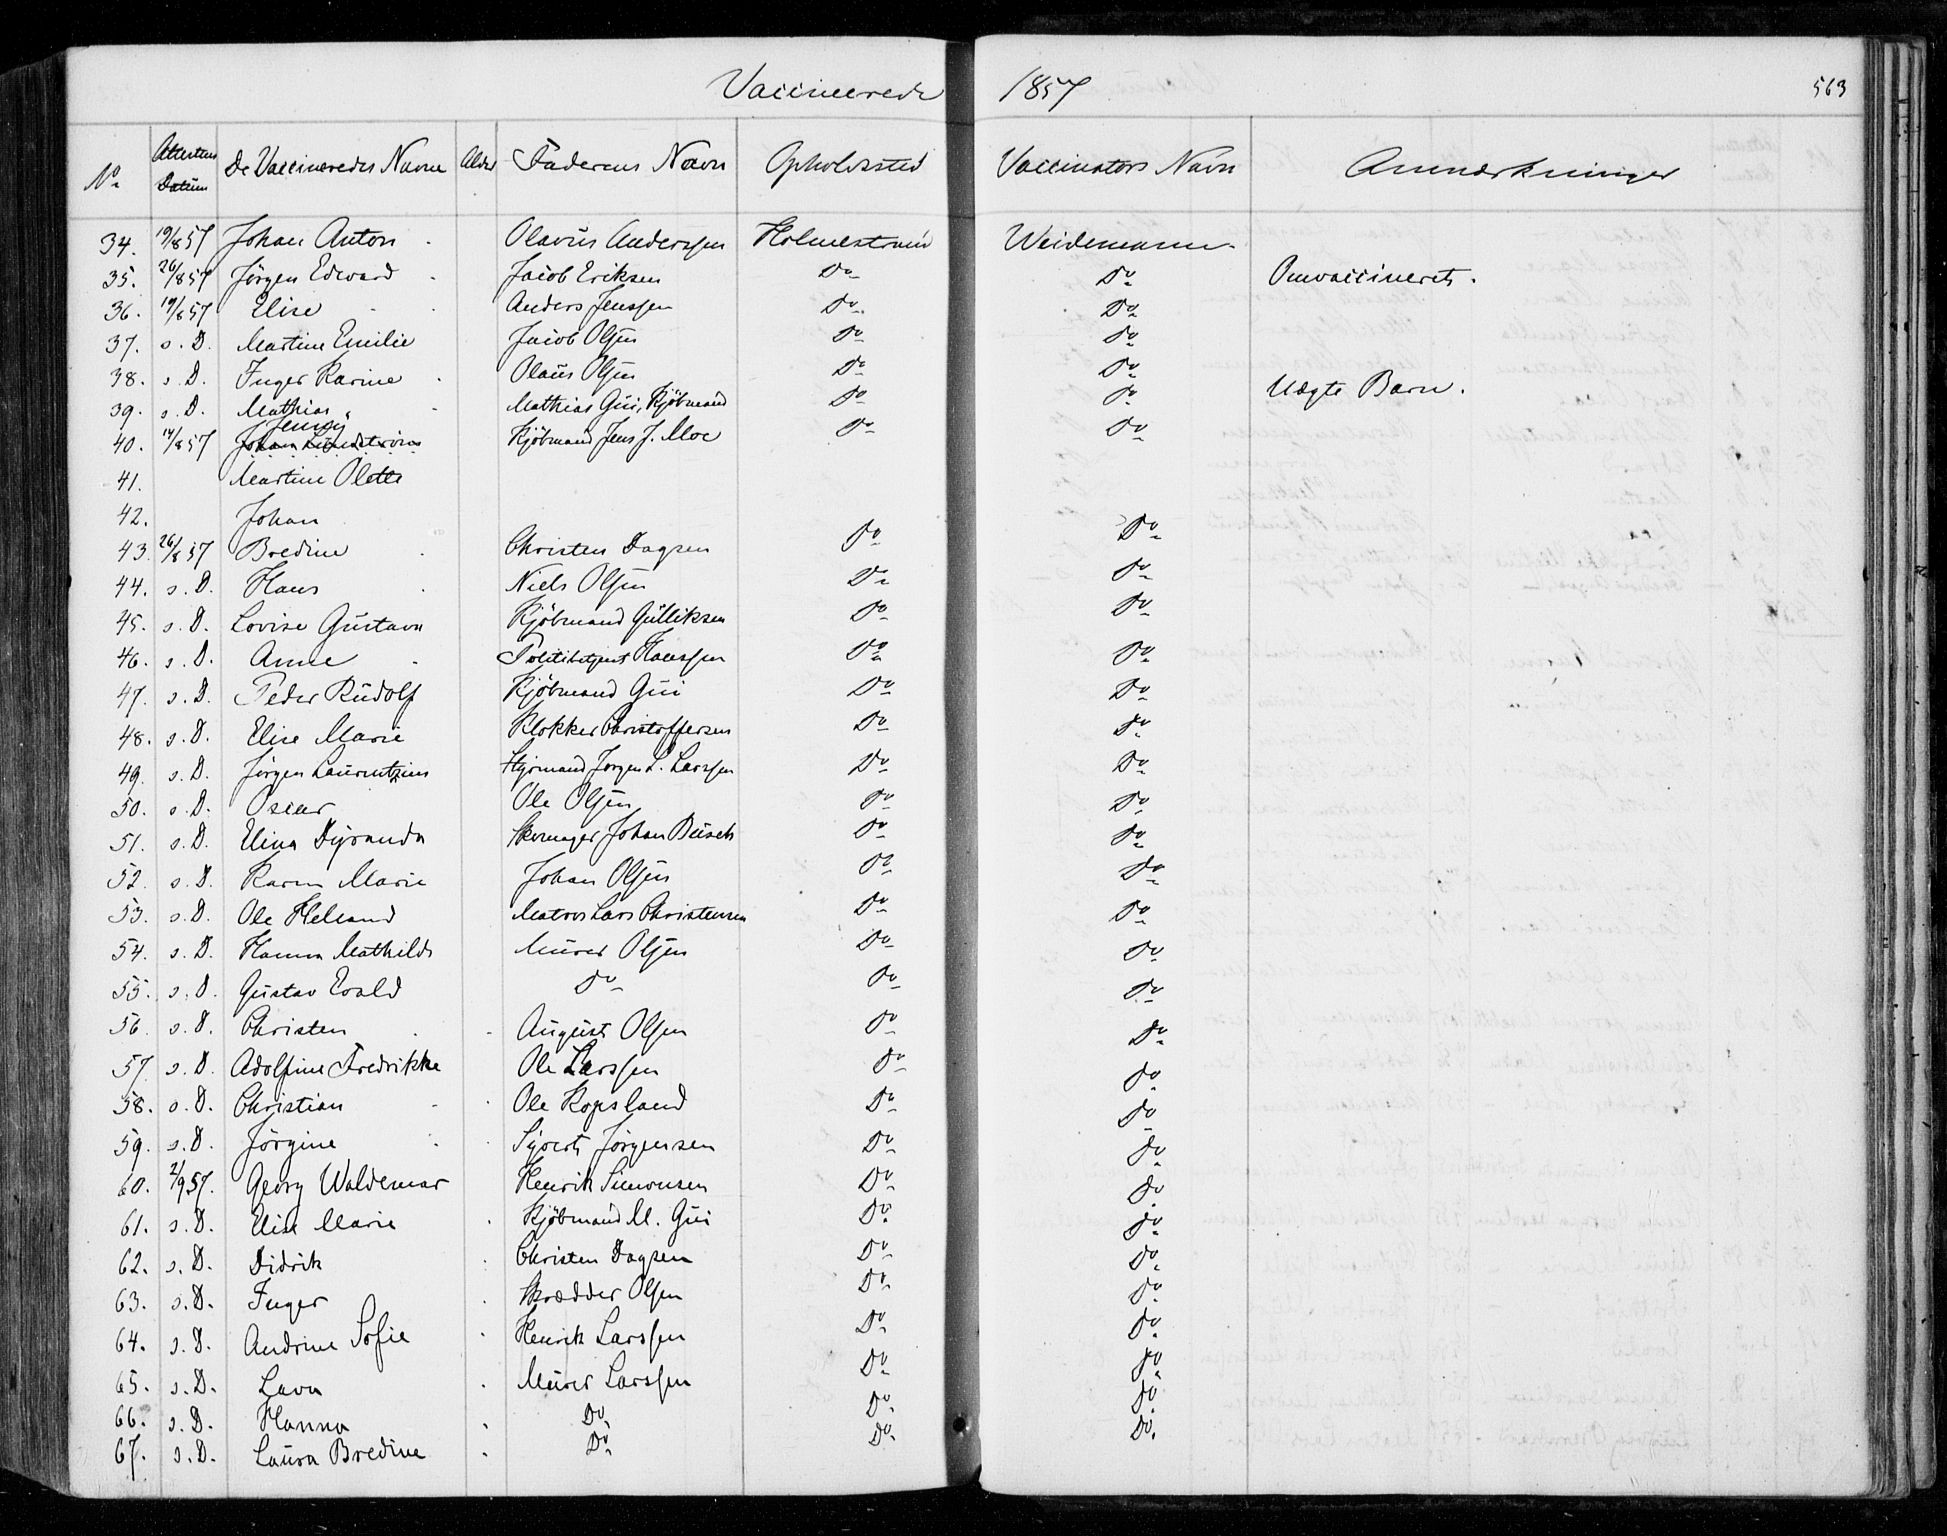 Vaccinerede 1857 563
No Attestens Datum De Vaccineredes Navne Alder Faderens Navn Opholdssted Vaccinators Navn Anmærkninger
34. 19/8 57 Johan Anton Olavus Anderssen Holmestrand Weidemann
35. 26/8 57 Jørgen Edvard Jacob Eriksen Do Do Omvaccineret.
36. 19/8 57 Elise Anders Jenssen Do Do
37. s. D. Martine Emilie Jacob Olsen Do Do
38. s. D. Inger Karine Olaus Olsen Do Do
39. s. D. Mathias Mathias Gui, Kjöbmand Do Do Uægte Barn.
Jenny
40. 14/8 57 Johan Lundstrøm Kjöbmand Jens J. Moe Do Do
41. Martine Olette
42. Johan
43. 26/8 57 Bredine Christen Dagsen Do Do
44. s. D. Hans Niels Olsen Do Do
45. s. D. Lovise Gustava Kjöbmand Gulliksen Do Do
46. s. D. Anne Politibetjent Hanssen Do Do
47. s. D. Peder Rudolf Kjöbmand Gui Do Do
48. s. D. Elise Marie Klokker Christoffersen Do Do
49. s. D. Jørgen Laurentzius Styrmand Jørgen L. Larssen Do Do
50. s. D. Oscar Ole Olsen Do Do
51. s. D. Elina Dyranda Skomager Johan Busch Do Do
52. s. D. Karen Marie Johan Olsen Do Do
53. s. D. Ole Helland Matros Lars Christensen Do Do
54. s. D. Hanna Mathilde Murer Olsen Do Do
55. s. D. Gustav Evald Do Do Do
56. s. D. Christen August Olsen Do Do
57. s. D. Adolfine Fredrikke Ole Larssen Do Do
58. s. D. Christian Ole Kopsland Do Do
59. s. D. Jørgine Syvert Jørgensen Do Do
60. 2/9 57. Georg Waldemar Henrik Simonsen Do Do
61. s. D. Elise Marie Kjöbmand M. Gui Do Do
62. s. D. Didrik Christen Dagsen Do Do
63. s. D. Inger Skrædder Olsen Do Do
64. s. D. Andrine Sofie Henrik Larssen Do Do
65. s. D. Lava Murer Larssen Do Do
66. s. D. Hanna Do Do Do.
67. s. D. Laura Bredine Do Do Do.